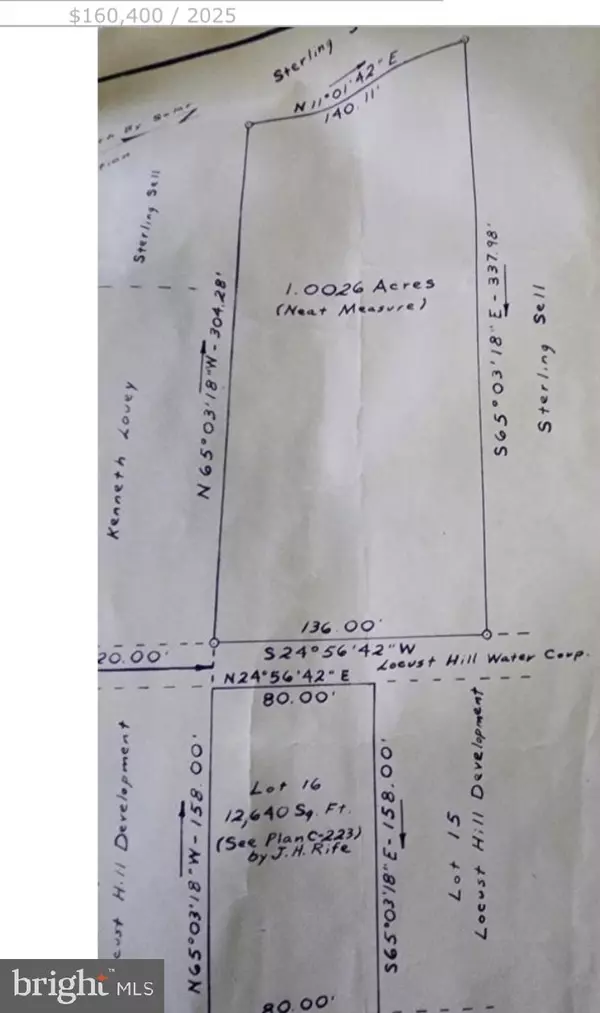 $160,400 / 2025
Sterling
N 11°01'42" E
140.11'
Sterling Sell
1.0026 Acres
(Neat Measure)
N 65°03'18"W - 304.28'
S65°03'18"E - 337.98'
Sterling Sell
Kenneth Lovey
136.00'
S24°56'42"W
20.00'
Locust Hill Water Corp.
N24°56'42"E
80.00'
Hill Development
N65°03'18"W - 158.00'
Lot 16
12,640 Sq. Ft.
(See Plan C-223)
by J.H. Rife
S65°03'18"E - 158.00'
Lot 15
Locust Hill Development
80.00'
bright MLS